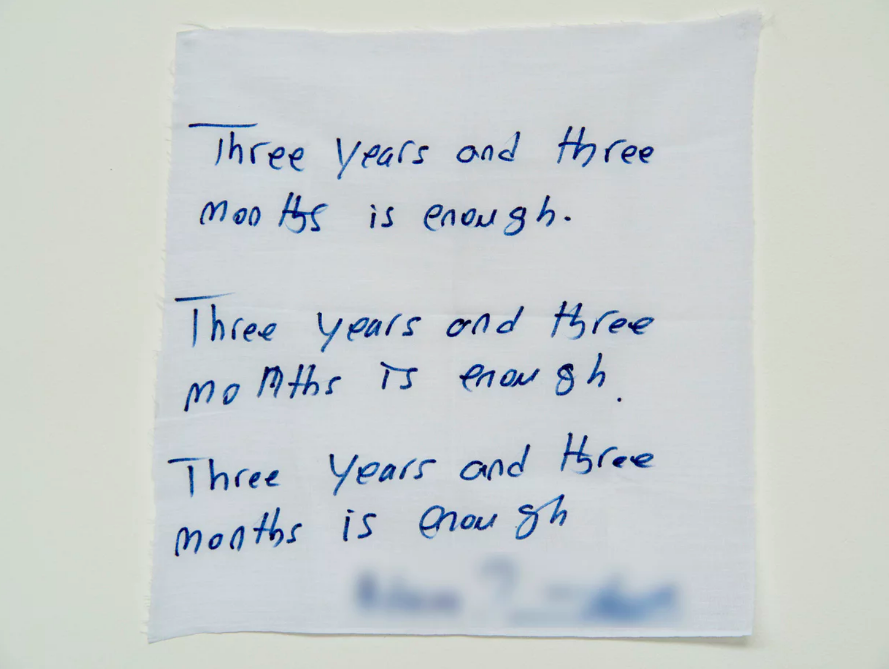 Three years and three
months is enough.
Three years and three
months is enough.
Three years and three
months is enough